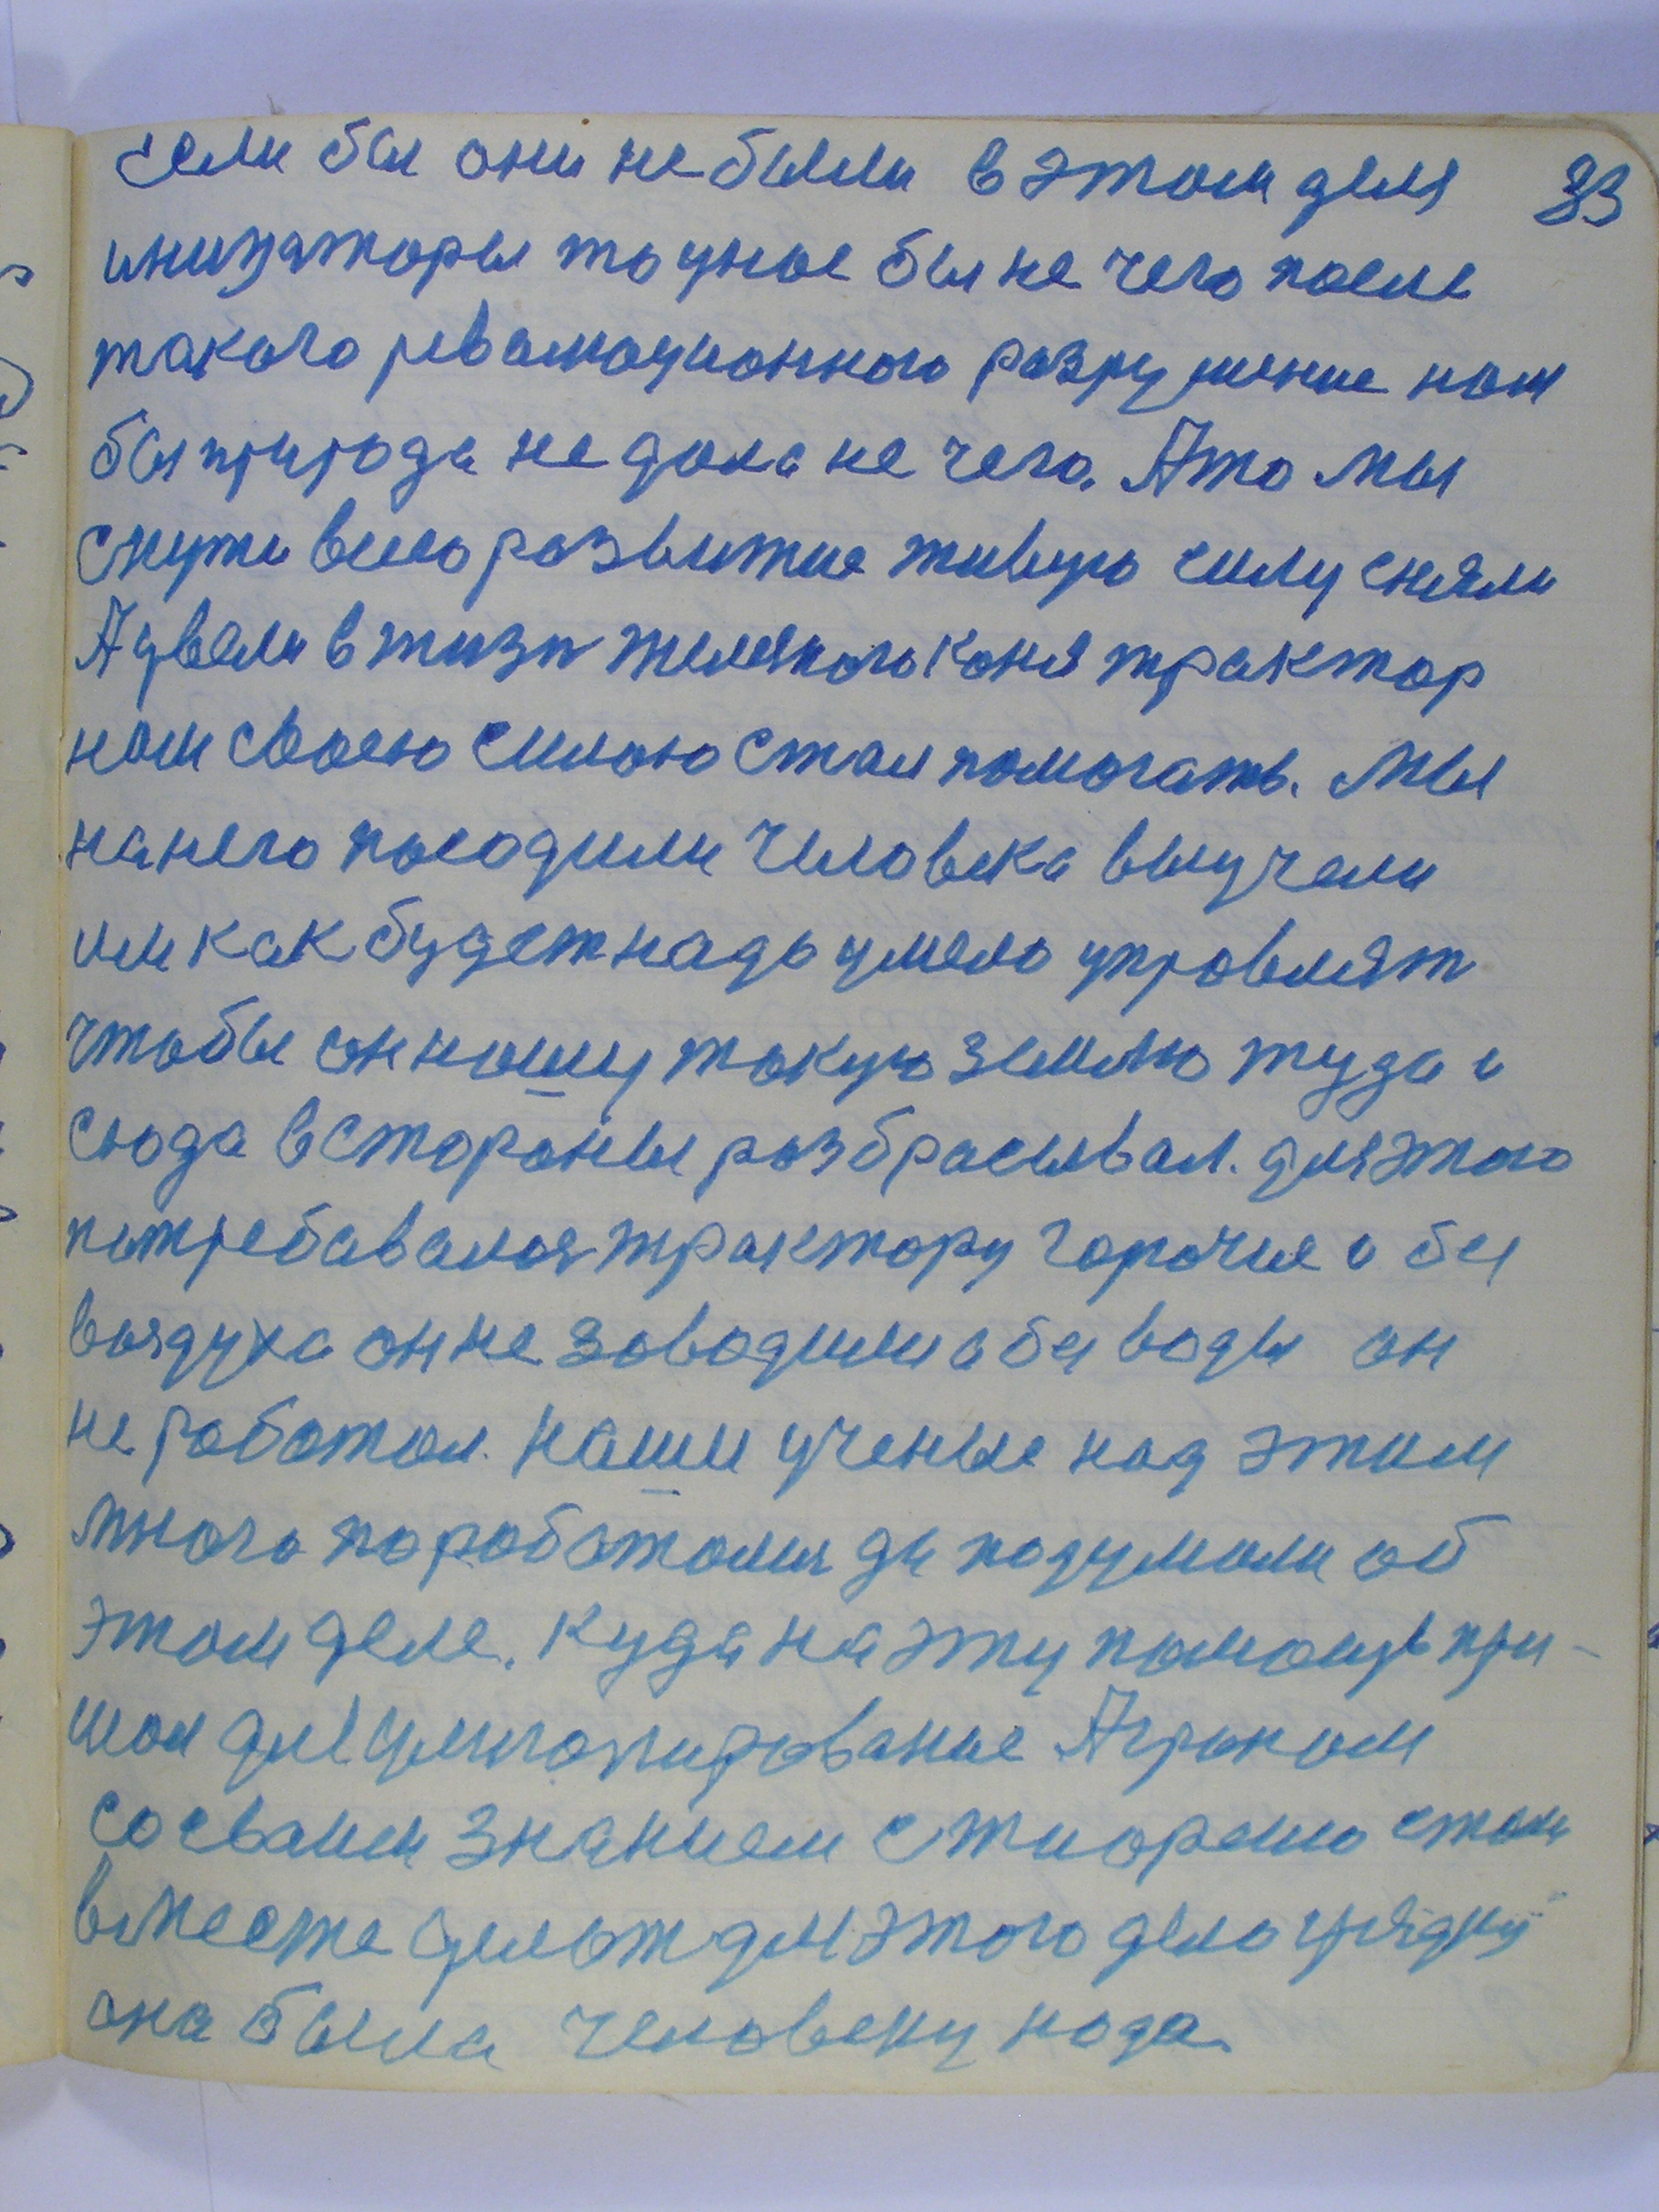 если бы они не были в этом деля 33
иницяторы то унас бы не чего после
такого революционного разрушение нам
бы природа не дала не чего. Ато мы
спути всего развитие живую силу сняли
Аувели в жизн железного коня трактор
нам своею силою стал помогать. Мы
нанего посодили человека выучели
им как будет надо умело управлят
чтобы он нашу такую землю туда и
сюда встороны разбрасывал. для этого
потребавался трактору горючие а без
воздуха он не заводили а без воды он
не работал. Наши ученые над этим
много поработали да подумали об
этом деле. Куда на эту помощь при-
шол Агроном
со своими знанием стал
вместе для этого дела
она была человеку нада.